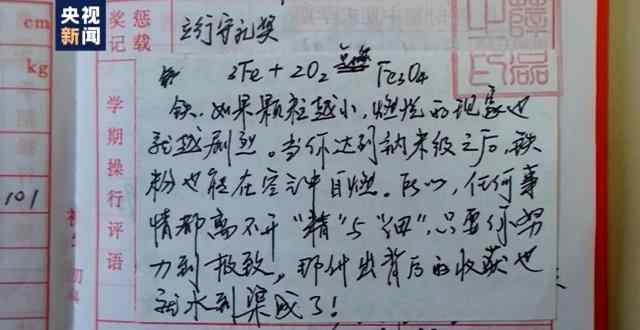 央视
新闻
cm
kg
101
奖惩
记载
行守礼奖
3Fe + 2O₂ 点燃 Fe₃O₄
学期操行评语
铁,如果颗粒越小,燃烧的现象也
就越剧烈。当你达到納米级之后,铁
粉也能在空气中自燃。所以,任何事
情都离不开“精”与“细”,只要你努
力到极致,那付出背后的收获也
就水到渠成了!